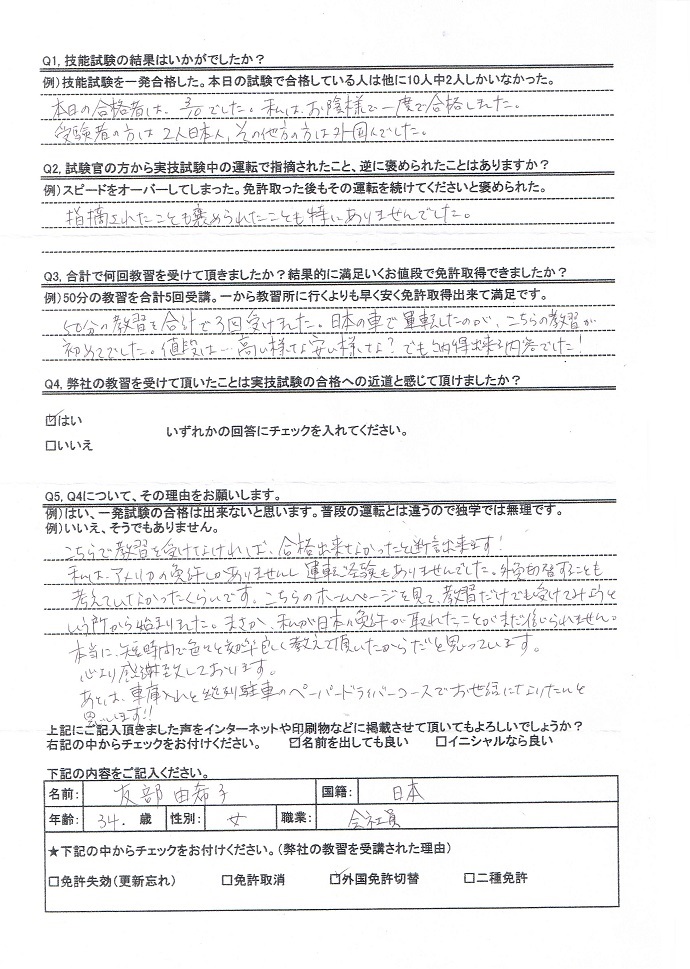 Q1, 技能試験の結果はいかがでしたか？
例）技能試験を一発合格した。本日の試験で合格している人は他に10人中2人しかいなかった。
本日の合格者は、3/10でした。私は、お陰様で一度で合格しました。
受験者の方は2人日本人、その他の方は外国人でした。
Q2, 試験官の方から実技試験中の運転で指摘されたこと、逆に褒められたことはありますか？
例）スピードをオーバーしてしまった。免許取った後もその運転を続けてくださいと褒められた。
指摘されたことも褒められたことも特にありませんでした。
Q3, 合計で何回教習を受けて頂きましたか？結果的に満足いくお値段で免許取得できましたか？
例）50分の教習を合計5回受講。一から教習所に行くよりも早く安く免許取得出来て満足です。
50分の教習を合計で3回受けました。日本の車で運転したのが、こちらの教習が
初めてでした。値段は…高い様な安い様な？でも納得出来る内容でした！
Q4, 弊社の教習を受けて頂いたことは実技試験の合格への近道と感じて頂けましたか？
☑はい
いずれかの回答にチェックを入れてください。
□いいえ
Q5, Q4について、その理由をお願いします。
例）はい、一発試験の合格は出来ないと思います。普段の運転とは違うので独学では無理です。
例）いいえ、そうでもありません。
こちらで教習を受けなければ、合格出来なかったと断言出来ます！
私は、アメリカの免許しかありませんし、運転経験もありませんでした。外免切替することも
考えていなかったくらいです。こちらのホームページを見て、教習だけでも受けてみようと
いう所から始まりました。まさか、私が日本の免許が取れたことがまだ信じられません。
本当に、短時間で色々と効率良く教えて頂いたからだと思っています。
心より感謝致しております。
あとは、車庫入れと縦列駐車のペーパードライバーコースでお世話になりたいと
思います!!
上記にご記入頂きました声をインターネットや印刷物などに掲載させて頂いてもよろしいでしょうか？
右記の中からチェックをお付けください。 ☑名前を出しても良い □イニシャルなら良い
下記の内容をご記入ください。
名前： 友部 由希子 国籍： 日本
年齢： 34. 歳 性別： 女 職業： 会社員
★下記の中からチェックをお付けください。（弊社の教習を受講された理由）
□免許失効（更新忘れ） □免許取消 ☑外国免許切替 □二種免許